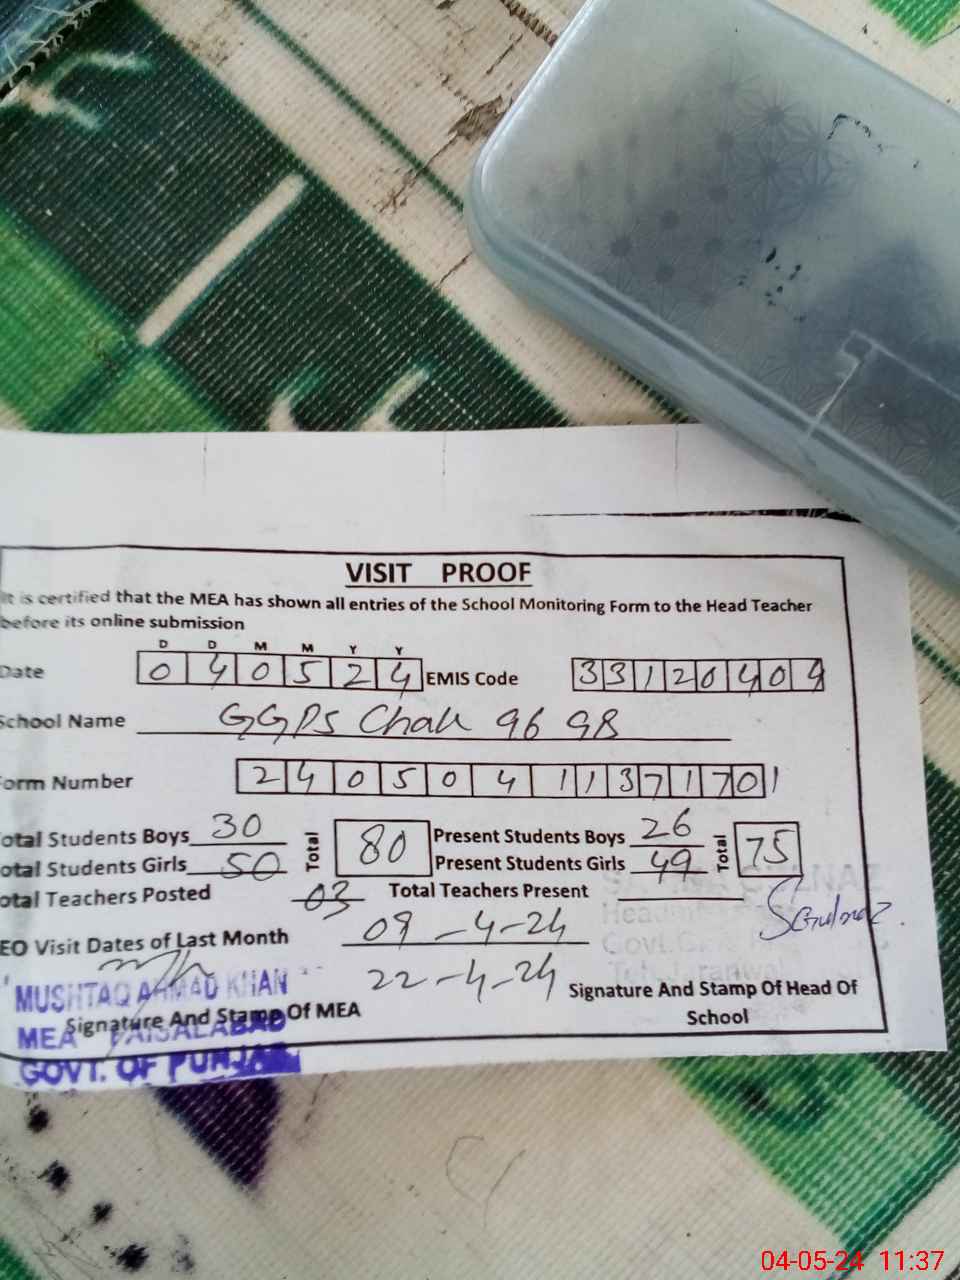 VISIT PROOF
It is certified that the MEA has shown all entries of the School Monitoring Form to the Head Teacher
before its online submission
D D M M Y Y
Date 0 4 0 5 2 4 EMIS Code 3 3 1 2 0 4 0 4
School Name GGPS Chak 96 GB
Form Number 2 4 0 5 0 4 1 1 3 7 1 7 0 1
otal Students Boys 30 Total 80 Present Students Boys 26 Total 75
otal Students Girls 50 Present Students Girls 49
otal Teachers Posted 03 Total Teachers Present
EO Visit Dates of Last Month 09-4-24
22-4-24
MUSHTAQ AHMAD KHAN
Signature And Stamp Of MEA
MEA FAISALABAD
GOVT. OF PUNJAB
Signature And Stamp Of Head Of
School
04-05-24 11:37